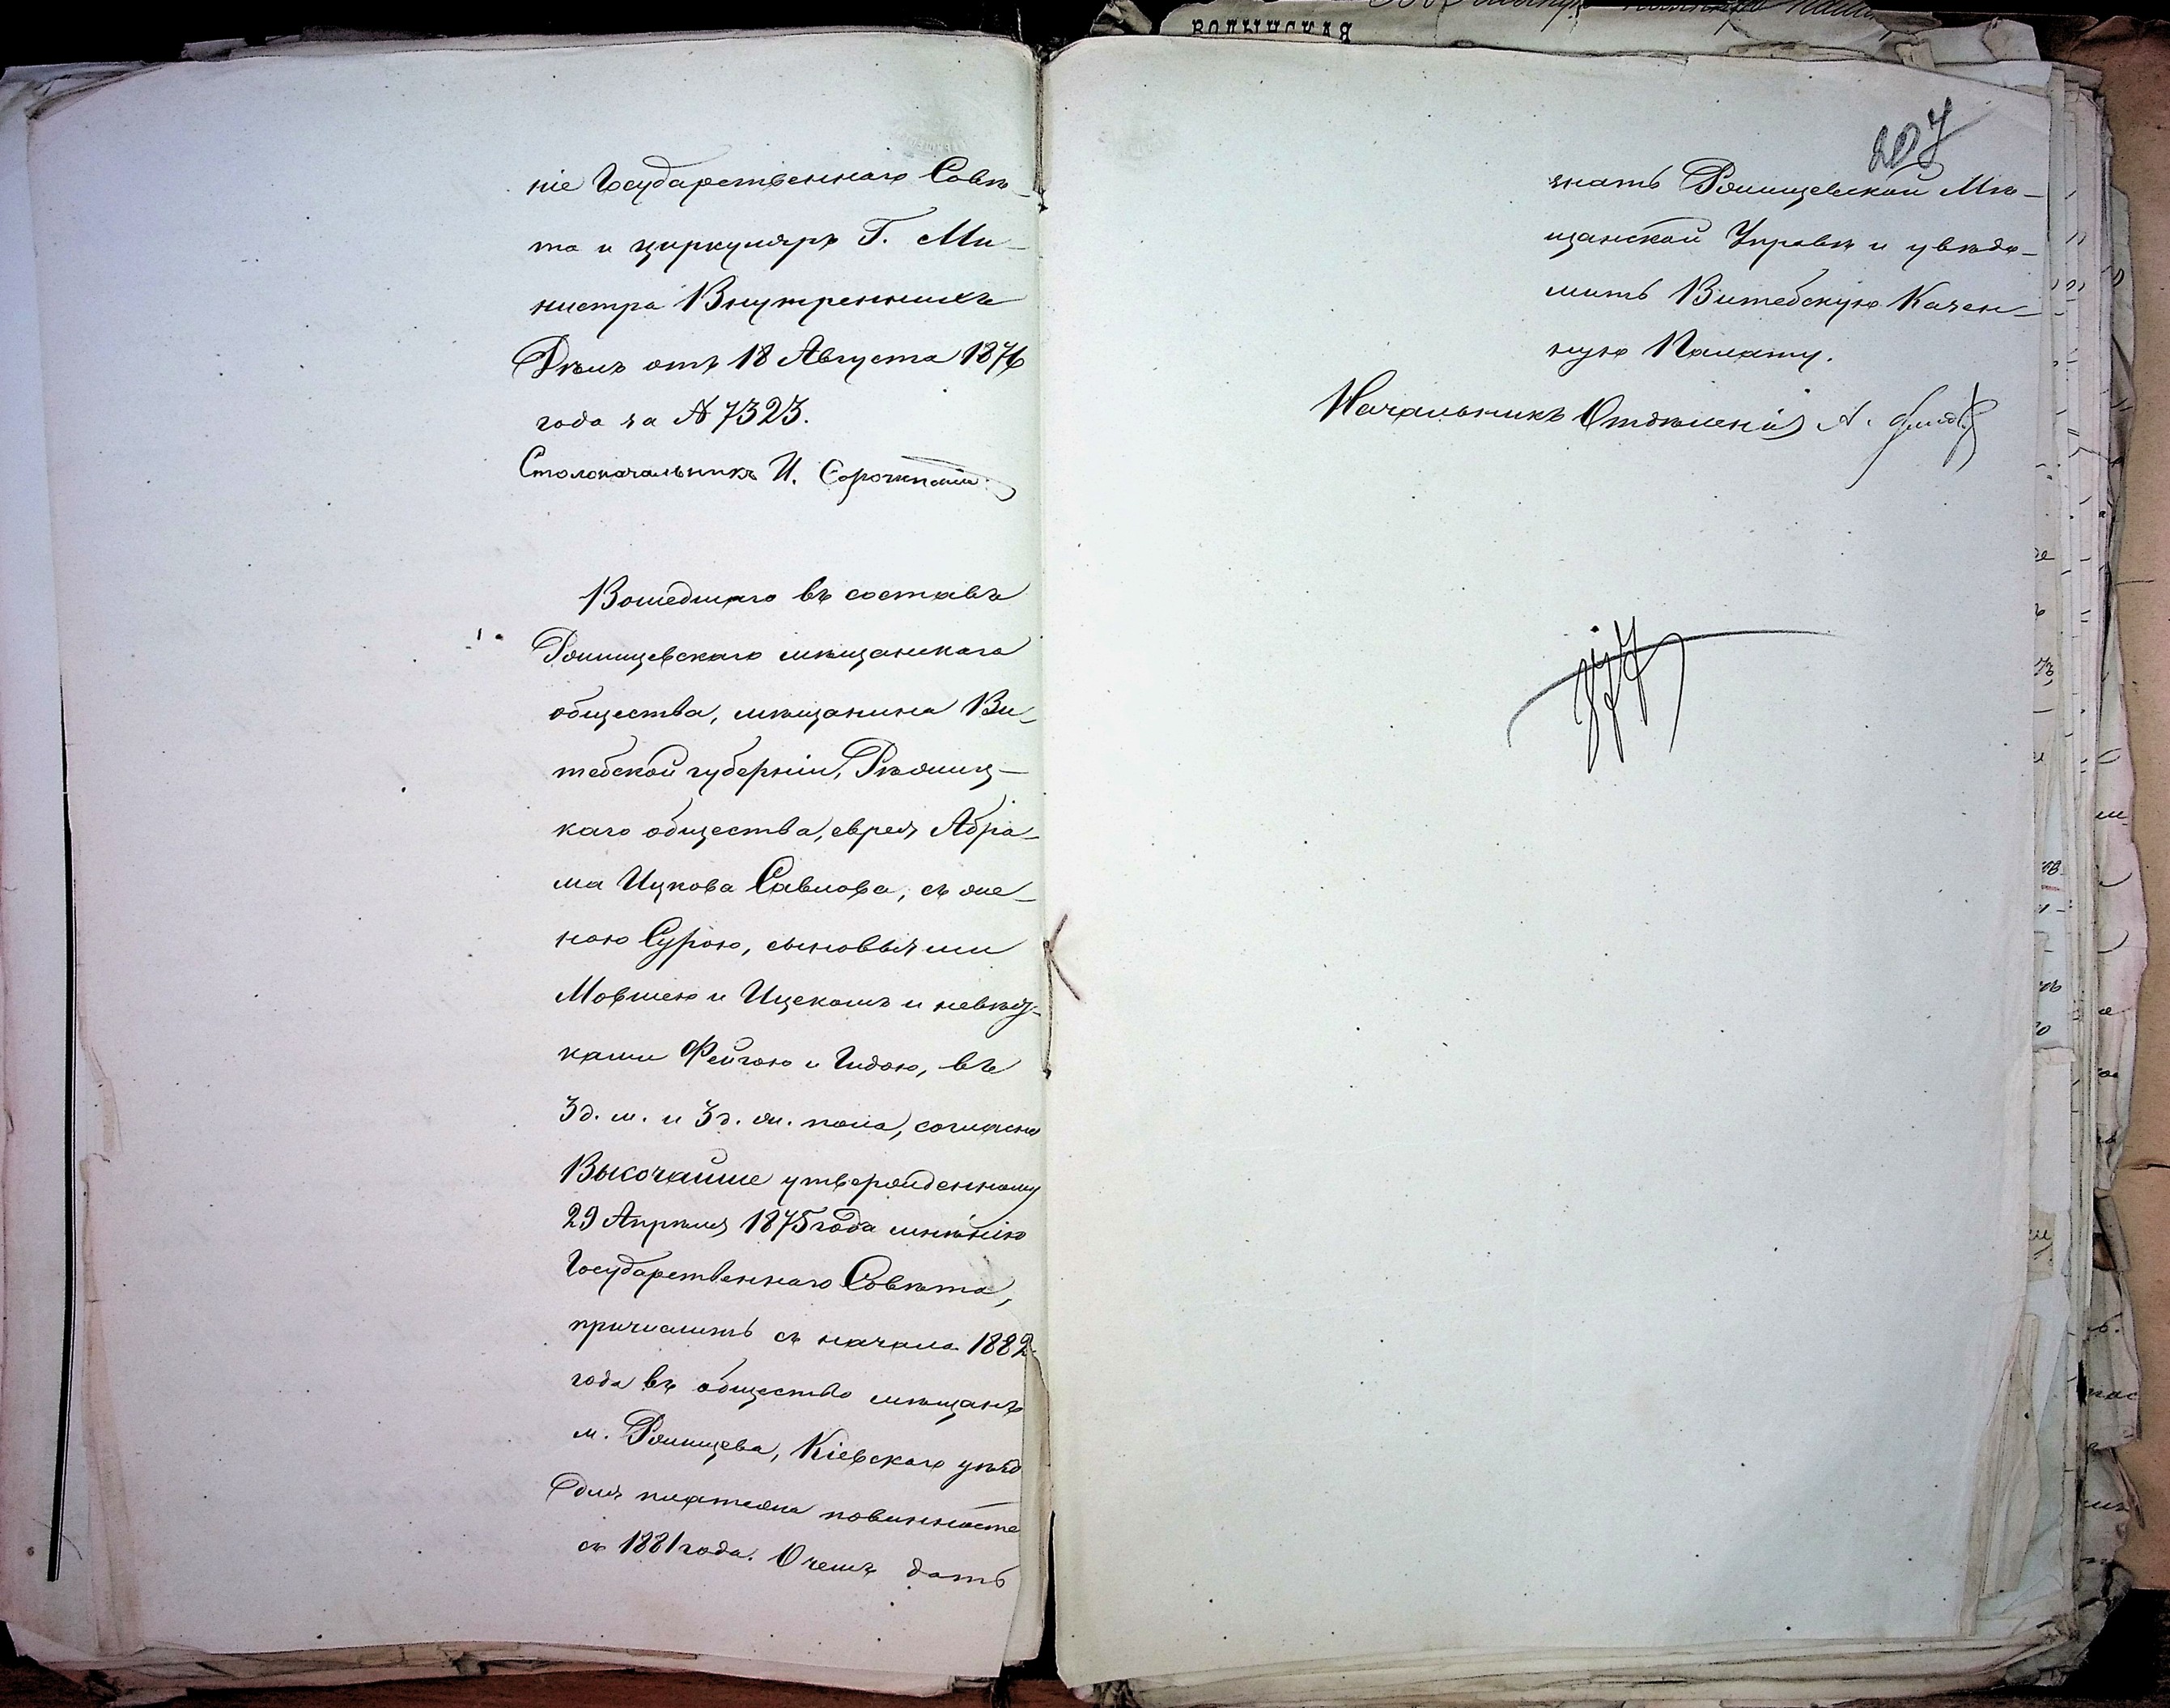 ВОЛЫНСКАЯ
ніе Государственнаго Совѣ-
та и циркуляръ Г. Ми-
нистра Внутреннихъ
Дѣлъ отъ 18 Августа 1876
года за № 7323.
Столоначальникъ И.
Вошедшаго въ составъ
Ржищевскаго мѣщанскаго
общества, мѣщанина Ви-
тебской губерніи, Рѣжиц-
каго общества, еврея Абра-
ма Ицкова Савлова, съ же-
ною Сурою, сыновьями
Мовшею и Ицекомъ и невѣст-
ками Фейгою и Гидою, въ
3 д. м. и 3 д. ж. пола, согласно
Высочайше утвержденному
29 Апрѣля 1875 года мнѣнію
Государственнаго Совѣта,
причислить съ начала 1882
года въ общество мѣщанъ
м. Ржищева, Кіевскаго уѣзд
для платежа повинносте
съ 1881 года. О чемъ дать
207
знать Ржищевской Мѣ-
щанской Управѣ и увѣдо-
мить Витебскую Казен-
ную Палату.
Начальникъ Отдѣленія А.